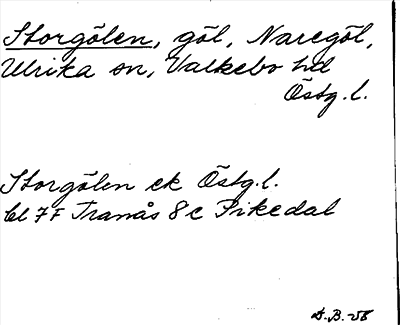 Storgölen, göl, Naregöl,
Ulrika sn, Valkebo hd
Östg.l.
Storgölen ek Östg.l.
bl 7F Tranås 8c Pikedal